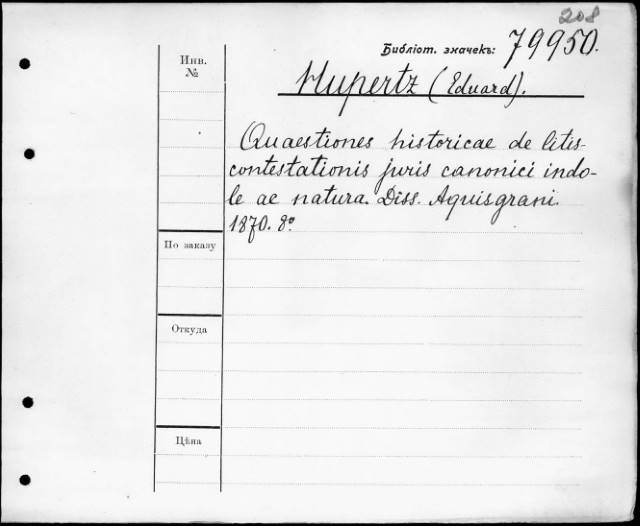 208
Библіот. значекъ: 79950.
Инв.
№
Hupertz (Eduard).
Quaestiones historicae de litis-
contestationis juris canonici indo-
le ac natura. Diss. Aquisgrani.
1870. 8°
По заказу
Откуда
Цѣна